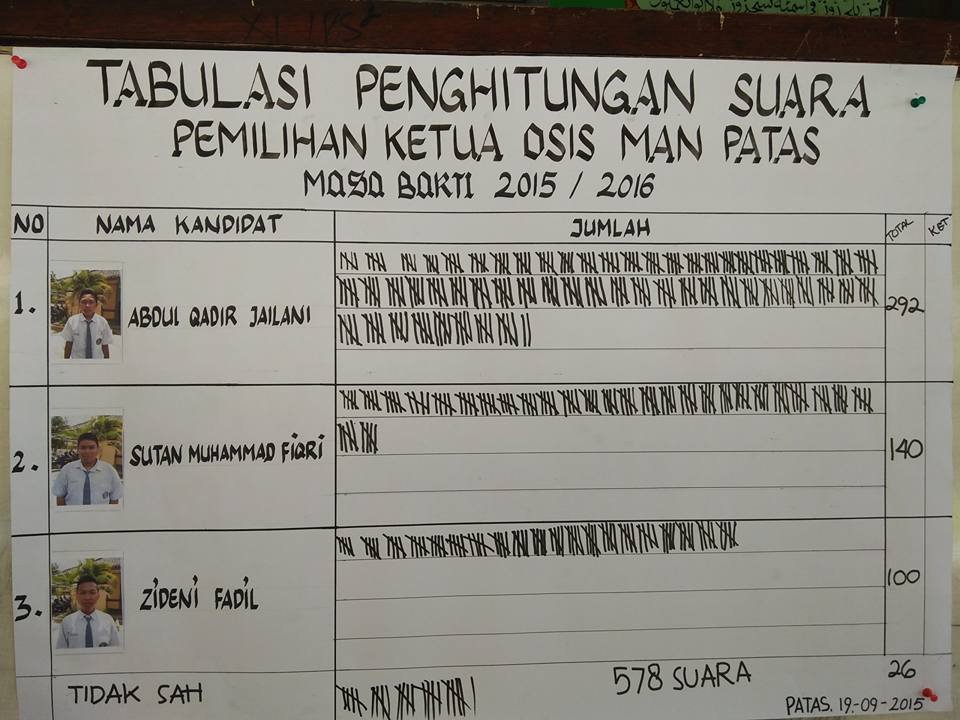 XI IPS²
TABULASI PENGHITUNGAN SUARA
PEMILIHAN KETUA OSIS MAN PATAS
MASA BAKTI 2015 / 2016
NO NAMA KANDIDAT JUMLAH TOTAL KET
1. ABDUL QADIR JAILANI 292
2. SUTAN MUHAMMAD FIQRI 140
3. ZIDENI FADIL 100
TIDAK SAH 578 SUARA 26
PATAS, 19-09-2015